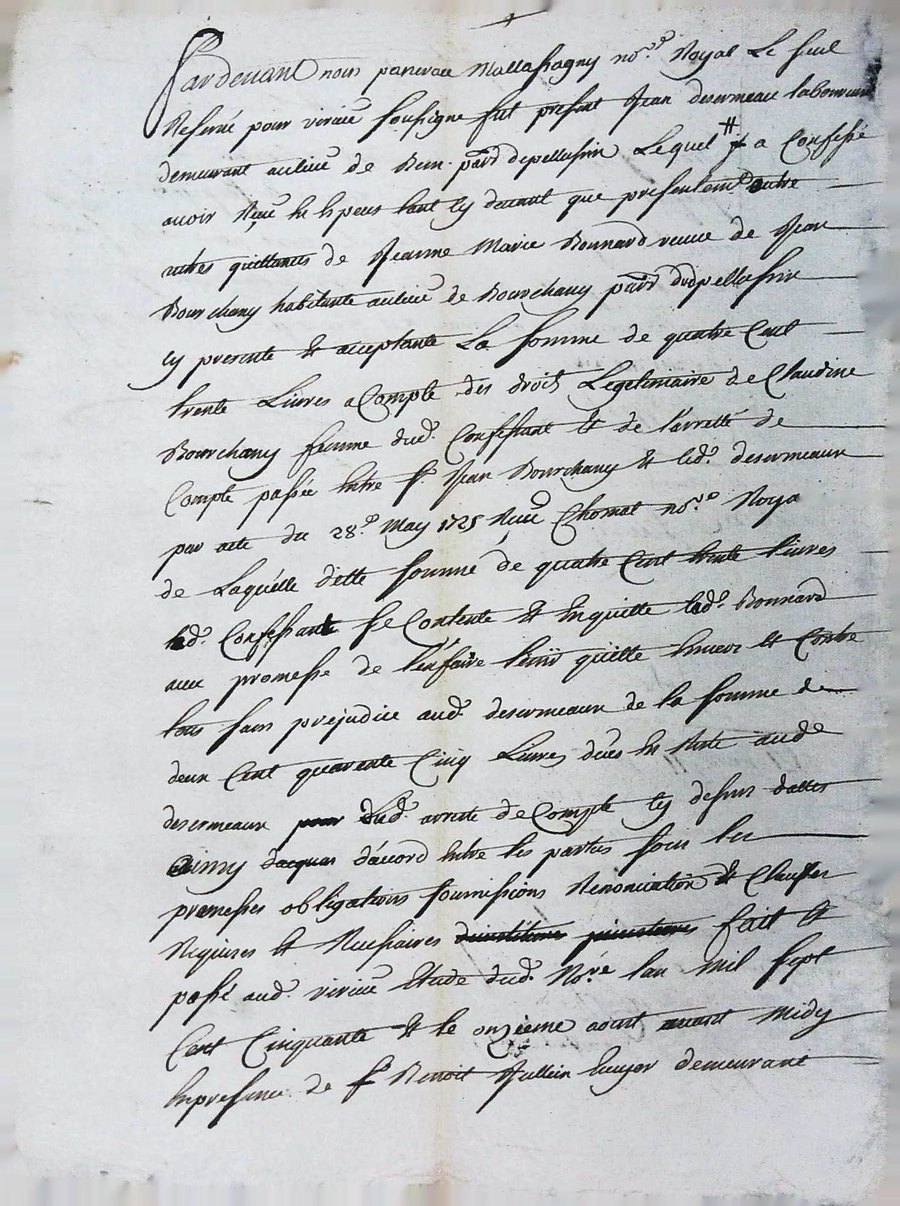 Pardevant nous pancrace Mallassagny no.re Royal Le seul
Reservé pour virieu soussigne fut present Jean desermeau laboureur
demeurant au lieu de Bein parr depellussin Lequel # a Confessé
avoir Reçu en especes tant cy devant que presentemt outre
autres quittances de Jeanne Marie Bonnard veuve de Jean
Bourchany habitante au lieu de Bourchany parr dudpellussin
cy presente et acceptante La somme de quatre Cent
trente Livres a Compte des droits Legitimaire de Claudine
Bourchany femme dud. Confessant et de l'arretté de
Compte passée entre Sr Jean Bourchany et led. desermeaux
par acte du 28.e May 1725 Reçu Chomat no.re Roya
de Laquelle ditte somme de quatre Cent trente livres
led. Confessant se Contente et en quitte lad. Bonnard
avec promesse de l'en faire tenir quitte envers et Contre
tous sans prejudice aud. desermeaux de la somme de
deux Cent quarente Cinq Livres dües en Reste aud
desermeaux pour dud. arretté de Compte cy dessus datté
Ainsy d'acord entre les parties sous les
promesses obligations soumissions Renonciation et Clauses
Requises et Necessaires fait et
passé aud. virieu Etude dud. No.re lan mil sept
Cent Cinquante et le onzieme aoust avant Midy
En presence de Sr Benoit Jullien huyer demeurant